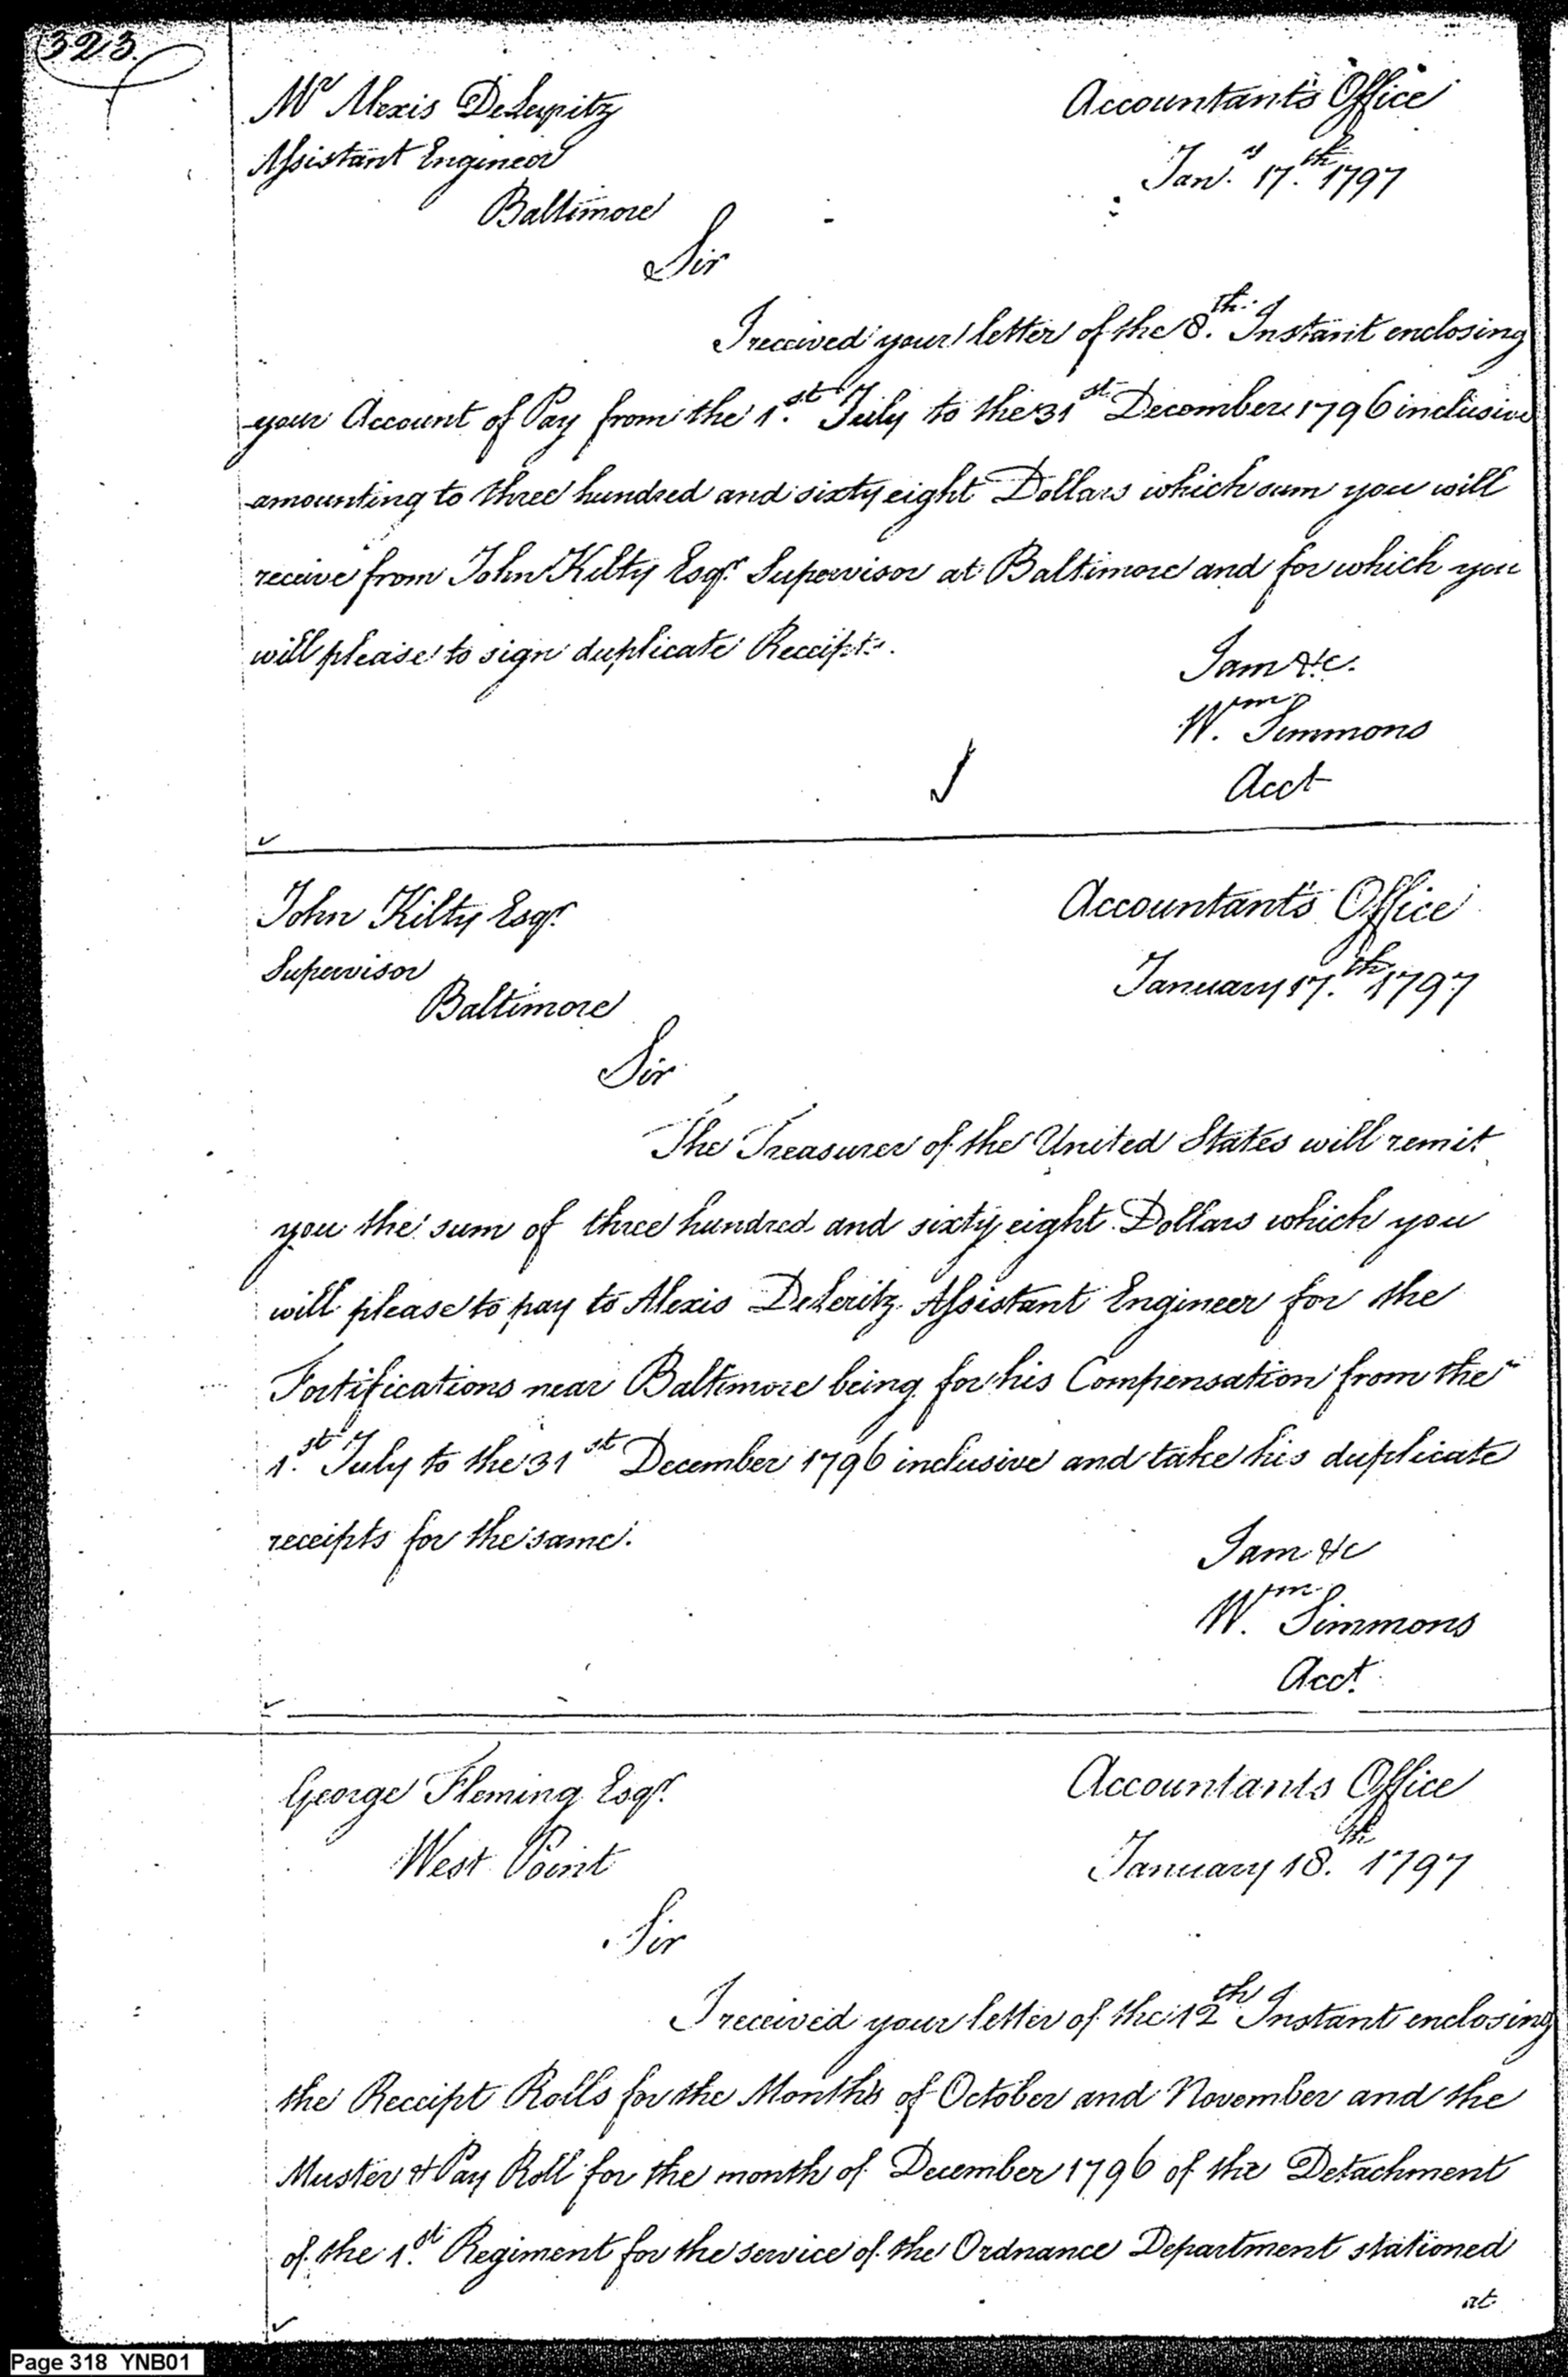 323.
Mr Alexis DeLeyritz
Assistant Engineer
Baltimore
Accountant's Office
Jany 17.th 1797
Sir
I received your letter of the 8.th Instant enclosing
your Account of Pay from the 1.st July to the 31st December 1796 inclusive
amounting to three hundred and sixty eight Dollars which sum you will
receive from John Kilty Esqr Supervisor at Baltimore and for which you
will please to sign duplicate Receipts.
I am &c.
Wm Simmons
Acct
John Kilty Esqr
Supervisor
Baltimore
Accountant's Office
January 17.th 1797
Sir
The Treasurer of the United States will remit
you the sum of three hundred and sixty eight Dollars which you
will please to pay to Alexis DeLeritz Assistant Engineer for the
Fortifications near Baltimore being for his Compensation from the
1.st July to the 31st December 1796 inclusive and take his duplicate
receipts for the same.
I am &c
Wm Simmons
Acct.
George Fleming Esqr.
West Point
Accountants Office
January 18.th 1797
Sir
I received your letter of the 12th Instant enclosing
the Receipt Rolls for the Months of October and November and the
Muster & Pay Roll for the month of December 1796 of the Detachment
of the 1.st Regiment for the service of the Ordnance Department stationed
at
Page 318 YNB01